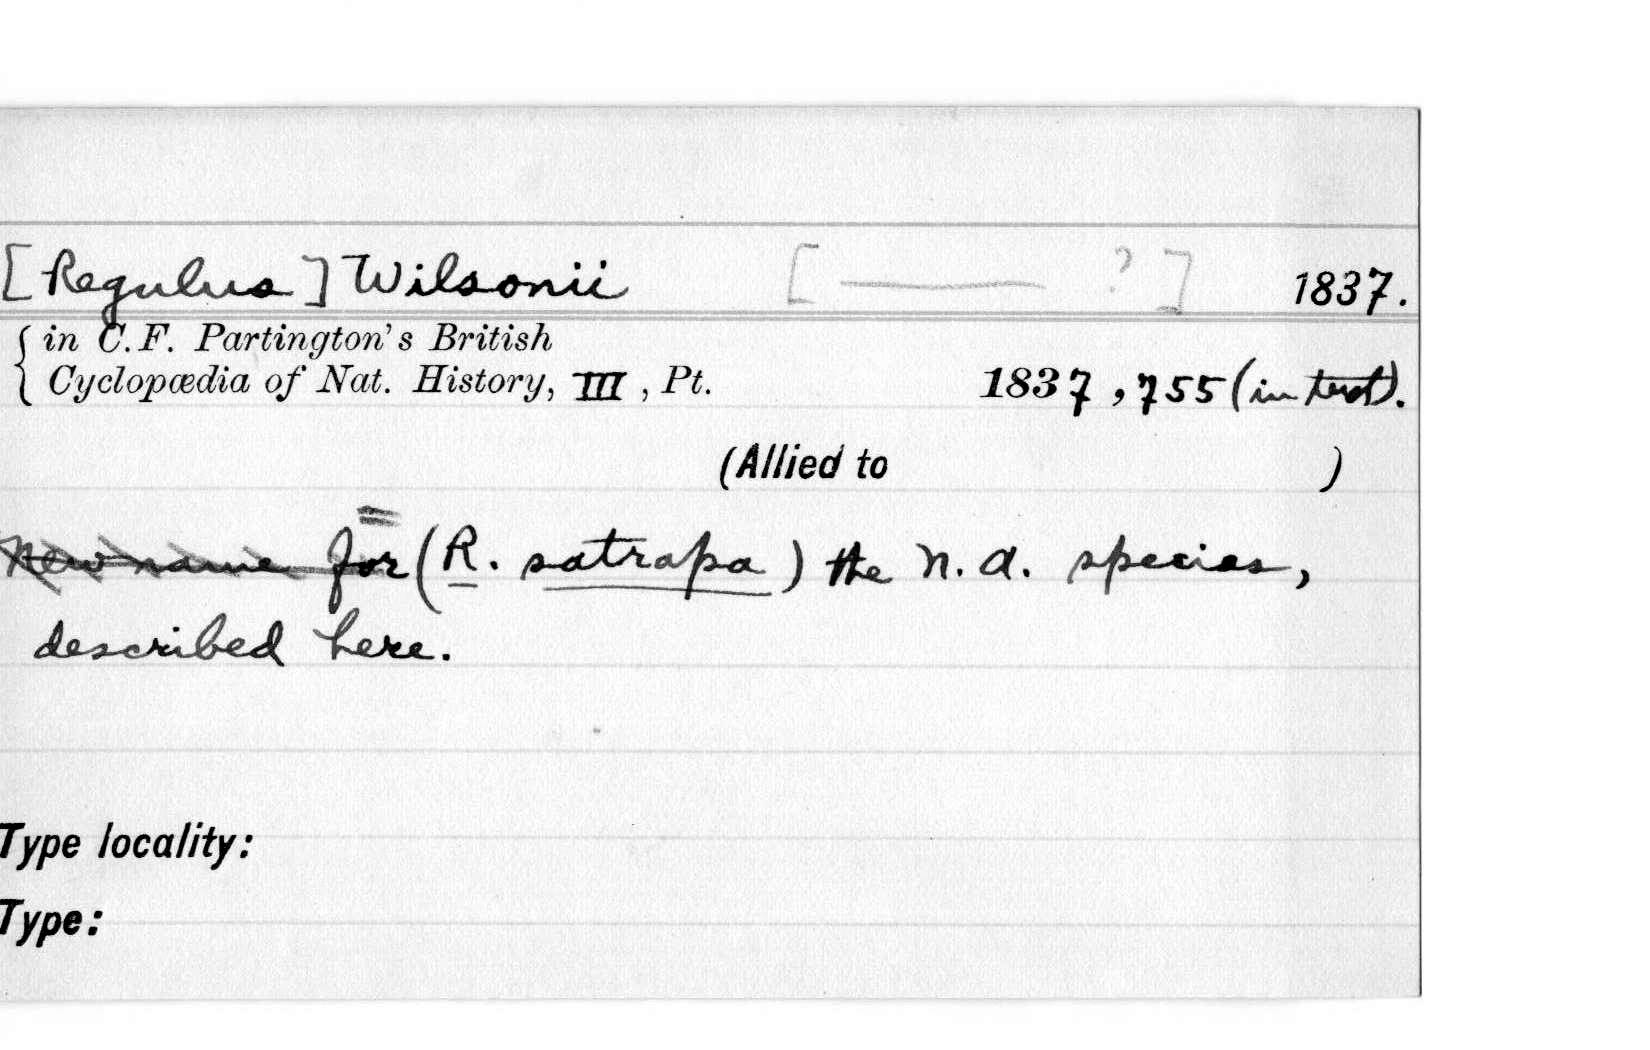 [Regulus] Wilsonii [——— ?] 1837.
{ in C. F. Partington's British
Cyclopædia of Nat. History, III, Pt. 1837, 755 (in text).
(Allied to )
=
New name for (R. satrapa) the N. A. species,
described here.
Type locality:
Type: